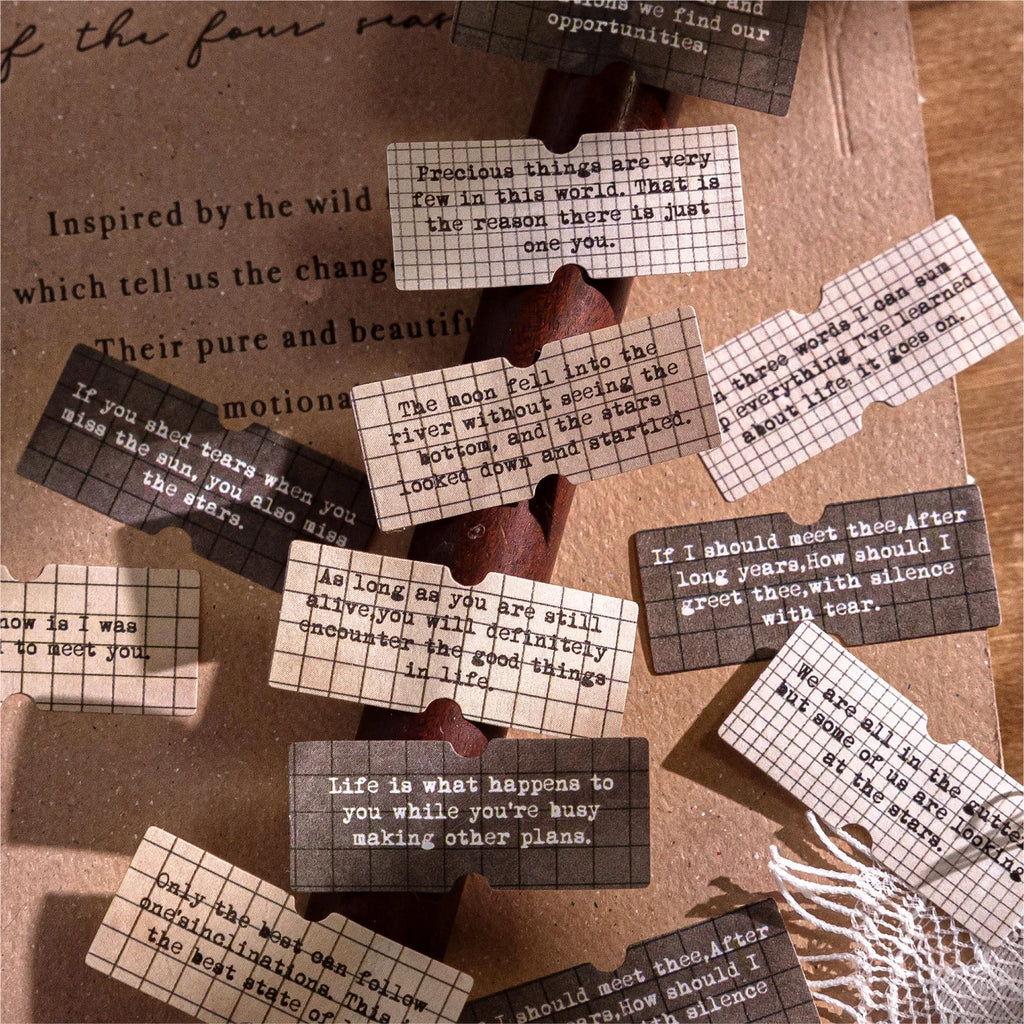 f the four seas
and
ions we find our
opportunities.
Precious things are very
few in this world. That is
the reason there is just
one you.
Inspired by the wild
which tell us the chang
Their pure and beautifu
motiona
n three words I can sum
p everything I've learned
about life. it goes on.
The moon fell into the
river without seeing the
bottom, and the stars
looked down and startled.
If you shed tears when you
miss the sun, you also miss
the stars.
If I should meet thee,After
long years,How should I
greet thee,with silence
with tear.
As long as you are still
alive,you will definitely
encounter the good things
in life.
now is I was
to meet you.
We are all in the gutter
but some of us are looking
at the stars.
Life is what happens to
you while you're busy
making other plans.
Only the best can follow
one'sinclinations. This
the best state of
I should meet thee,After
ars,How should I
th silence